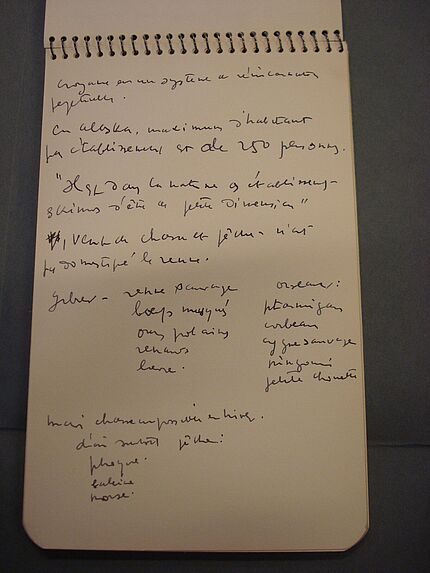 croyance en un système de réincarnation
perpétuelle.
En Alaska, maximum d'habitant
par établissement est de 250 personnes.
"Il est dans la nature des établissements
eskimos d'être de petite dimension"
, vivent de chasse et pêche - n'ont
pas domestiqué le renne.
gibier - renne sauvage
loups
ours polaires
renards
lièvre.
oiseaux:
ptarmigan
corbeau
cygne sauvage
pingouins
petite chouette
mais chasse impossible en hiver.
d'où surtout pêche:
phoque.
baleine
morse.